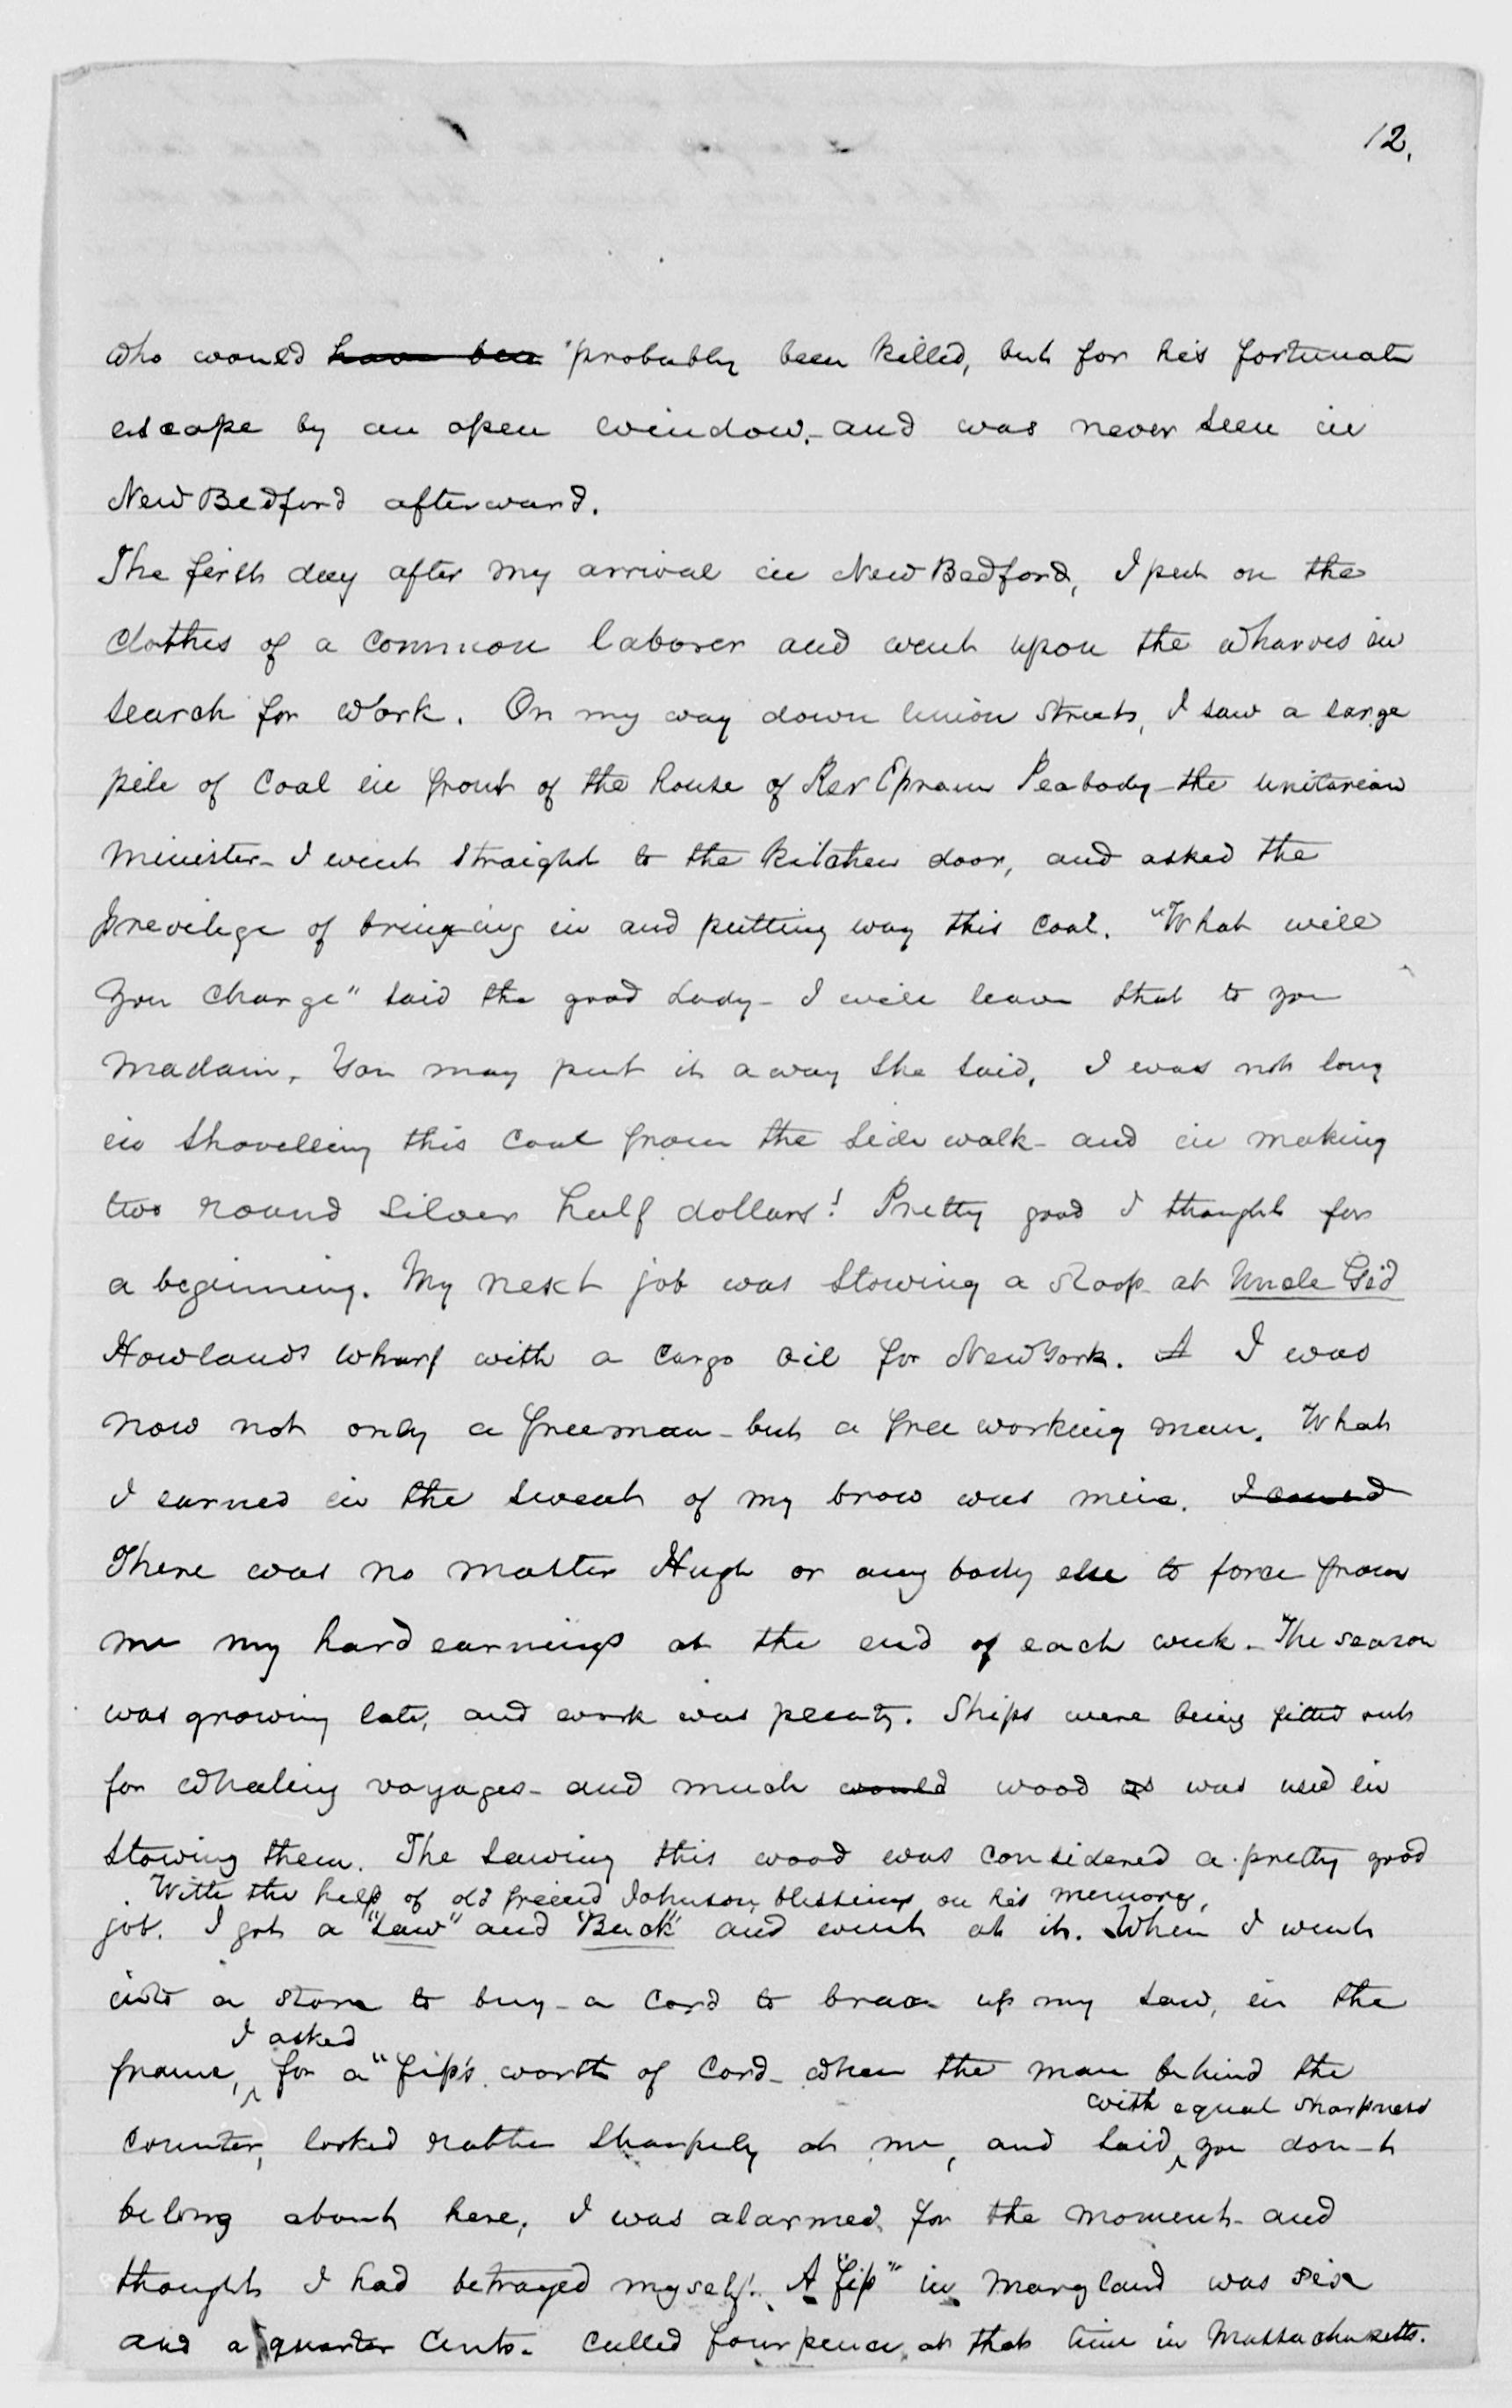 12.
who would have bee probably been killed, but for his fortunate
escape by an open window.- and was never seen in
New Bedford afterward.
The first day after my arrival in New Bedford, I put on the
clothes of a common laborer and went upon the wharves in
search for work. On my way down union street, I saw a large
pile of coal in front of the house of Rev Epraim Peabody - the unitarian
minister - I went straight to the kitchen door, and asked the
previlege of bringing in and putting way this coal. "What will
you charge" said the good Lady - I will leave that to you
madam. You may put it away she said. I was not long
in shovelling this coal from the side walk - and in making
two round silver half dollars! Pretty good I thought for
a beginning. My next job was stowing a sloop at Uncle Gid
Howlands wharf with a cargo oil for New York. A I was
now not only a freeman - but a free working man. What
I earned in the sweat of my brow was mine. I could
There was no master Hugh or any body else to force from
me my hard earnings at the end of each week - The season
was growing late, and work was plenty. Ships were being fitted out
for whaling voyages - and much would wood as was used in
stowing them. The sawing this wood was considered a pretty good
With the help of old friend Johnson, blessings on his memory,
job. I got a "saw" and "Buck" and went at it. When I went
into a store to buy - a cord to brace up my saw, in the
I asked
frame, for a "fip's worth of cord - when the man behind the
with equal sharpness
counter, looked rather sharpely at me, and said you don-t
belong about here. I was alarmed for the moment - and
thought I had betrayed myself. A "fip" in maryland was six
and a quarter cents - called fourpence at that time in Massachusetts.